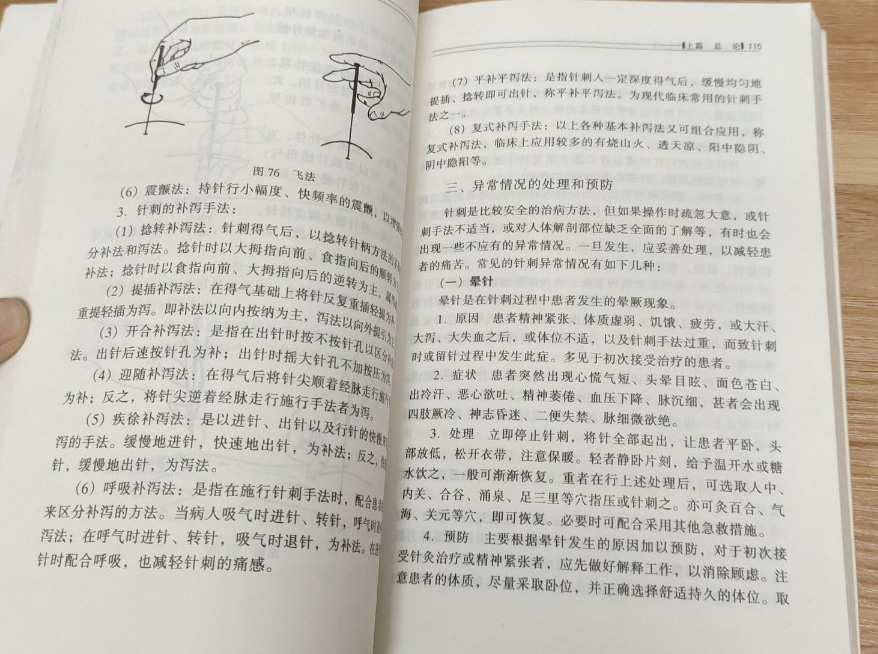 图 76 飞法
(6) 震颤法: 持针行小幅度、快频率的震颤, 以增
3. 针刺的补泻手法:
(1) 捻转补泻法: 针刺得气后, 以捻转针柄方法的
分补法和泻法。捻针时以大拇指向前、食指向后的顺转为
补法; 捻针时以食指向前、大拇指向后的逆转为主,
(2) 提插补泻法: 在得气基础上将针反复重插轻提为
重提轻插为泻。即补法以向内按纳为主, 泻法以向外提引为主
(3) 开合补泻法: 是指在出针时按不按针孔以区分补
法。出针后速按针孔为补; 出针时摇大针孔不加按压为
(4) 迎随补泻法: 在得气后将针尖顺着经脉走行施
为补; 反之, 将针尖逆着经脉走行施行手法者为泻。
(5) 疾徐补泻法: 是以进针、出针以及行针的快慢
泻的手法。缓慢地进针, 快速地出针, 为补法; 反之,
针, 缓慢地出针, 为泻法。
(6) 呼吸补泻法: 是指在施行针刺手法时, 配合患
来区分补泻的方法。当病人吸气时进针、转针, 呼气时
泻法; 在呼气时进针、转针, 吸气时退针, 为补法。在
针时配合呼吸, 也减轻针刺的痛感。
上篇 总 论 115
(7) 平补平泻法: 是指针刺人一定深度得气后, 缓慢均匀地
提插、捻转即可出针, 称平补平泻法。为现代临床常用的针刺手
法之一。
(8) 复式补泻手法: 以上各种基本补泻法又可组合应用, 称
复式补泻法, 临床上应用较多的有烧山火、透天凉、阳中隐阴、
阴中隐阳等。
三、异常情况的处理和预防
针刺是比较安全的治病方法, 但如果操作时疏忽大意, 或针
刺手法不适当, 或对人体解剖部位缺乏全面的了解等, 有时也会
出现一些不应有的异常情况。一旦发生, 应妥善处理, 以减轻患
者的痛苦。常见的针刺异常情况有如下几种:
(一) 晕针
晕针是在针刺过程中患者发生的晕厥现象。
1. 原因 患者精神紧张、体质虚弱、饥饿、疲劳, 或大汗、
大泻、大失血之后, 或体位不适, 以及针刺手法过重, 而致针刺
时或留针过程中发生此症。多见于初次接受治疗的患者。
2. 症状 患者突然出现心慌气短、头晕目眩、面色苍白、
出冷汗、恶心欲吐、精神萎倦、血压下降、脉沉细, 甚者会出现
四肢厥冷、神志昏迷、二便失禁、脉细微欲绝。
3. 处理 立即停止针刺, 将针全部起出, 让患者平卧, 头
部放低, 松开衣带, 注意保暖。轻者静卧片刻, 给予温开水或糖
水饮之, 一般可渐渐恢复。重者在行上述处理后, 可选取人中、
内关、合谷、涌泉、足三里等穴指压或针刺之。亦可灸百合、气
海、关元等穴, 即可恢复。必要时可配合采用其他急救措施。
4. 预防 主要根据晕针发生的原因加以预防, 对于初次接
受针灸治疗或精神紧张者, 应先做好解释工作, 以消除顾虑。注
意患者的体质, 尽量采取卧位, 并正确选择舒适持久的体位。取